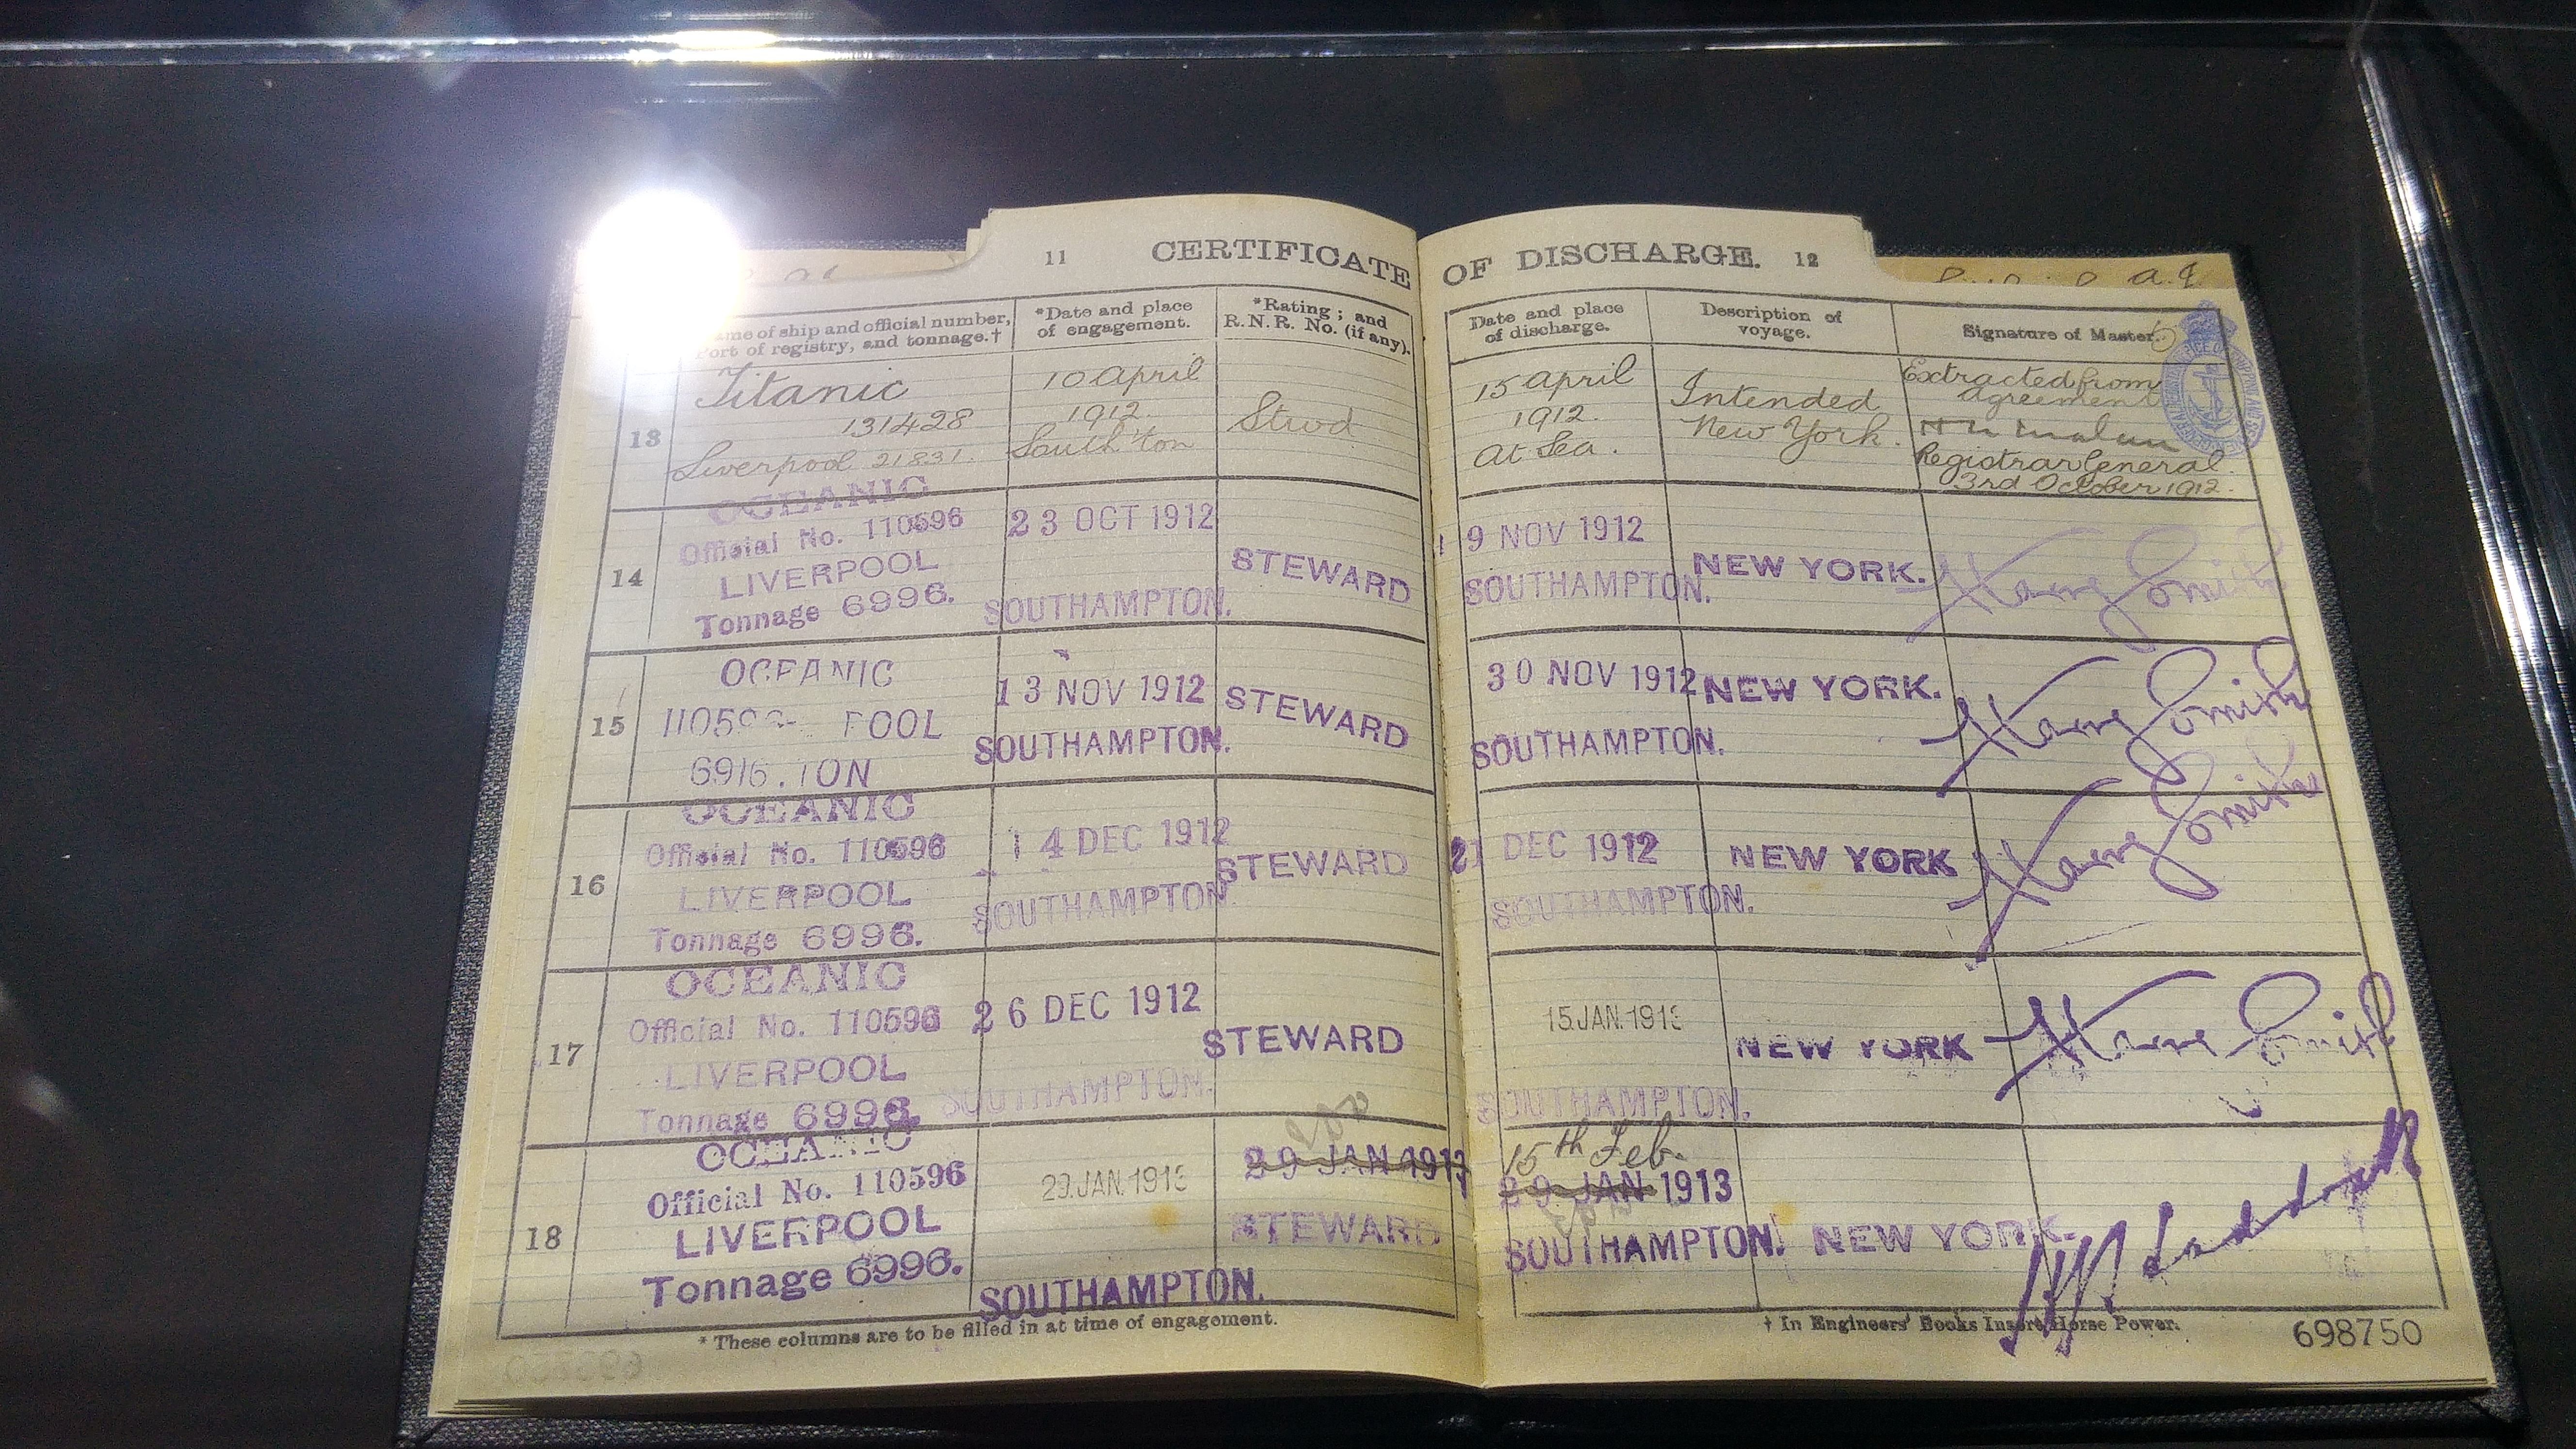 11 CERTIFICATE OF DISCHARGE. 12
of ship and official number,
of registry, and tonnage.†
*Date and place
of engagement.
*Rating; and
R.N.R. No. (if any).
Date and place
of discharge.
Description of
voyage.
Signature of Master.
13
Titanic
131428
Liverpool 21831.
10 April
1912.
South'ton
Stwd
15 April
1912.
At Sea.
Intended
New York.
Extracted from
agreement
Registrar General.
3rd October 1912.
14
OCEANIC
Official No. 110596
LIVERPOOL
Tonnage 6996.
23 OCT 1912
SOUTHAMPTON.
STEWARD
9 NOV 1912
SOUTHAMPTON.
NEW YORK.
Harry Smith
15
OCEANIC
POOL
TON
13 NOV 1912
SOUTHAMPTON.
STEWARD
30 NOV 1912
SOUTHAMPTON.
NEW YORK.
Harry Smith
16
OCEANIC
Official No. 110596
LIVERPOOL
Tonnage 6996.
14 DEC 1912
SOUTHAMPTON
STEWARD
21 DEC 1912
SOUTHAMPTON.
NEW YORK
Harry Smith
17
OCEANIC
Official No. 110596
LIVERPOOL
Tonnage 6996.
26 DEC 1912
SOUTHAMPTON.
STEWARD
15.JAN.1913
SOUTHAMPTON.
NEW YORK
Harry Smith
18
OCEANIC
Official No. 110596
LIVERPOOL
Tonnage 6996.
29.JAN.1913
SOUTHAMPTON.
29 JAN 1913
STEWARD
15th Feb.
29 JAN 1913
SOUTHAMPTON.
NEW YORK.
* These columns are to be filled in at time of engagement.
† In Engineers' Books Insert Horse Power.
698750